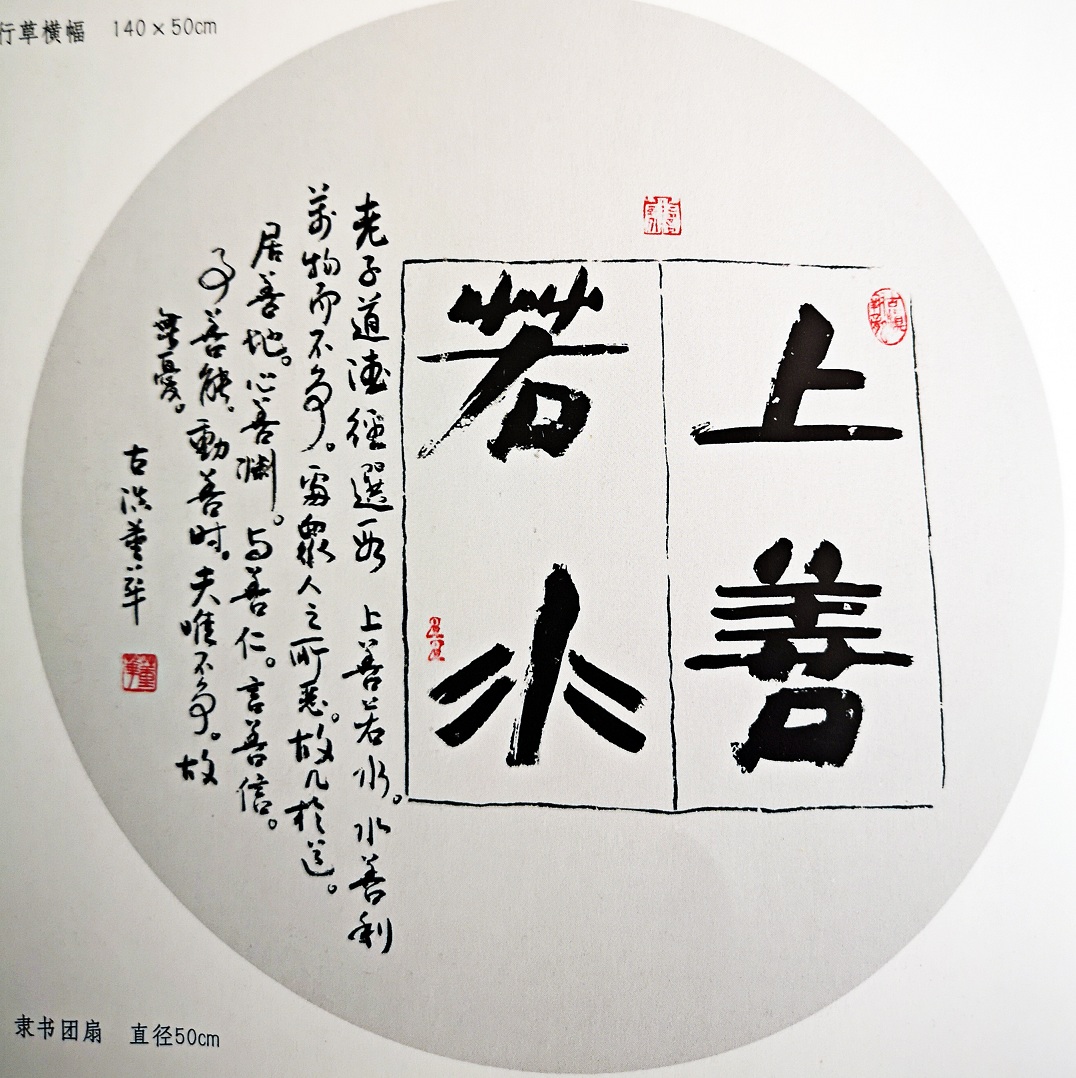 行草横幅 140×50cm
上善
若水
老子道德經選段 上善若水。水善利
萬物而不争。處衆人之所惡。故几於道。
居善地。心善渊。与善仁。言善信。
事善能。動善时。夫唯不争。故
無憂。
古 董军
隶书团扇 直径50cm